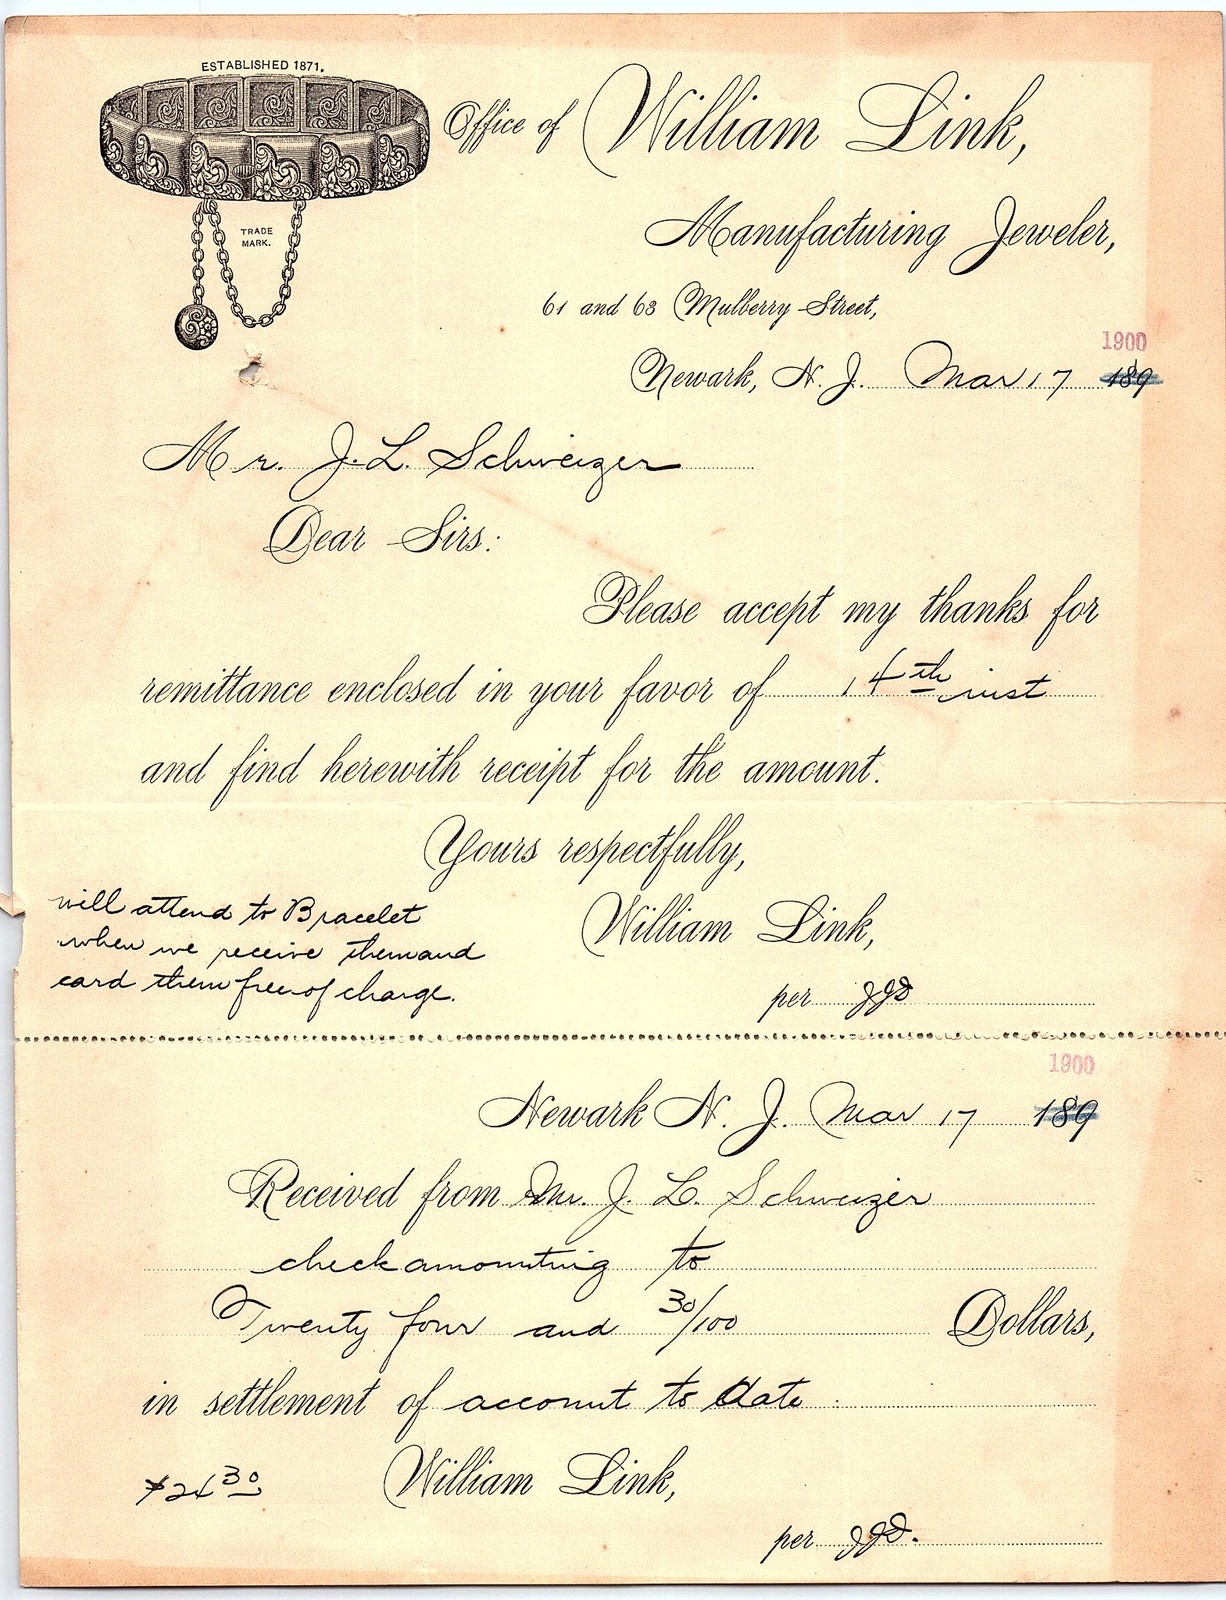 ESTABLISHED 1871.
Office of William Link,
TRADE
MARK.
Manufacturing Jeweler,
61 and 63 Mulberry Street,
1900
Newark, N. J. Mar 17 189
Mr. J. L. Schweizer
Dear Sirs:
Please accept my thanks for
remittance enclosed in your favor of 14th inst
and find herewith receipt for the amount.
Yours respectfully,
will attend to Bracelet
when we receive them and
card them free of charge.
William Link,
per
1900
Newark N. J. Mar 17 189
Received from Mr. J. L. Schweizer
check amounting to
Twenty four and 30/100 Dollars,
in settlement of account to date
$24 30
William Link,
per